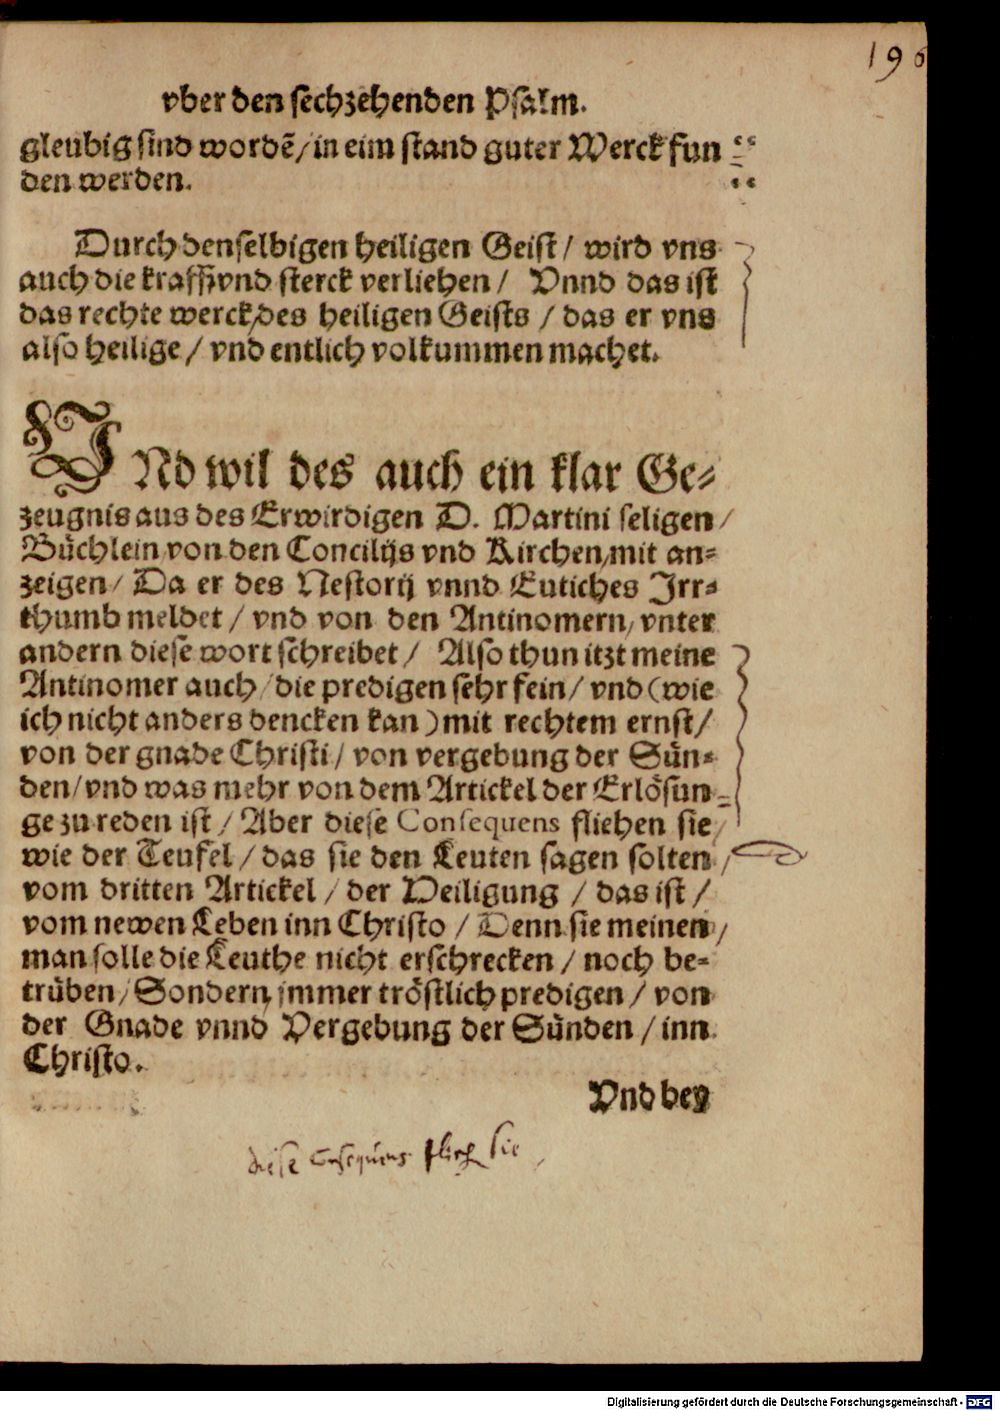 196
vber den sechzehenden Psalm.
gleubig sind wordẽ/in eim stand guter Werck fun
den werden.
Durch denselbigen heiligen Geist/ wird vns
auch die krafft vnd sterck verliehen/ Vnnd das ist
das rechte werck/des heiligen Geists / das er vns
also heilige / vnd entlich volkummen machet.
VNd wil des auch ein klar Ge-
zeugnis aus des Erwirdigen D. Martini seligen/
Büchlein von den Concilijs vnd Kirchen/mit an-
zeigen/ Da er des Nestorij vnnd Eutiches Irr-
thumb meldet / vnd von den Antinomern/ vnter
andern diese wort schreibet / Also thun itzt meine
Antinomer auch/die predigen sehr fein/ vnd (wie
ich nicht anders dencken kan) mit rechtem ernst/
von der gnade Christi/ von vergebung der Sün-
den/vnd was mehr von dem Artickel der Erlösun-
ge zu reden ist / Aber diese Consequens fliehen sie/
wie der Teufel / das sie den Leuten sagen solten/
vom dritten Artickel / der Heiligung / das ist /
vom newen Leben inn Christo / Denn sie meinen/
man solle die Leuthe nicht erschrecken / noch be-
trüben/Sondern immer tröstlich predigen / von
der Gnade vnnd Vergebung der Sünden / inn
Christo.
Vnd bey
diese Consequens flieh sie
Digitalisierung gefördert durch die Deutsche Forschungsgemeinschaft - DFG